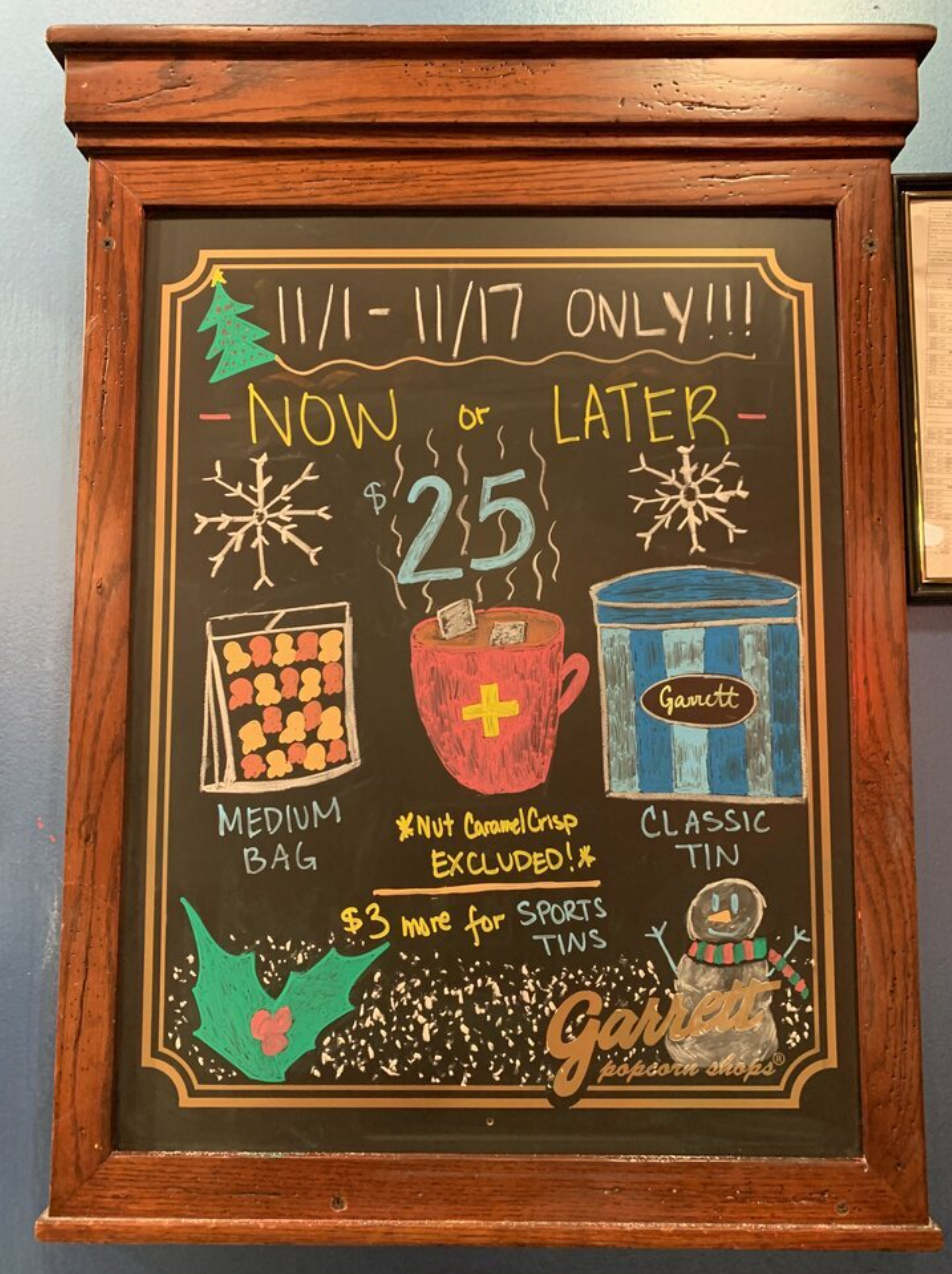 11/1 - 11/17 ONLY!!!
- NOW or LATER -
$25
Garrett
MEDIUM
BAG
*Nut CaramelCrisp
EXCLUDED!*
CLASSIC
TIN
$3 more for SPORTS
TINS
Garrett
popcorn shops®